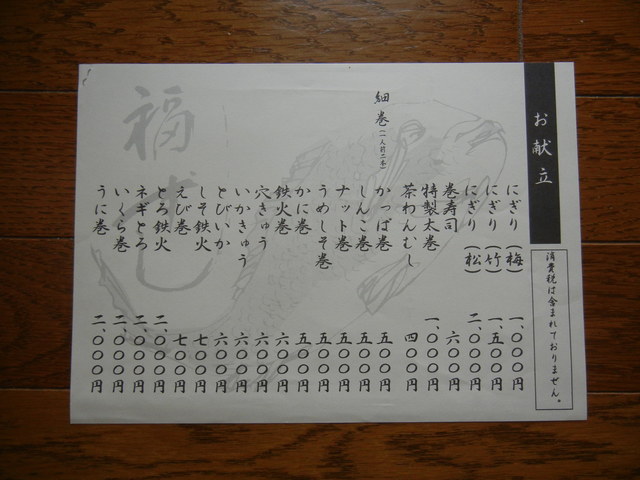 お献立
消費税は含まれておりません。
にぎり（梅） 一、〇〇〇円
にぎり（竹） 一、五〇〇円
にぎり（松） 二、〇〇〇円
巻寿司 六〇〇円
特製太巻 一、〇〇〇円
茶わんむし 四〇〇円
細巻（一人前二本）
かっぱ巻 五〇〇円
しんこ巻 五〇〇円
ナット巻 五〇〇円
うめしそ巻 五〇〇円
かに巻 五〇〇円
鉄火巻 六〇〇円
穴きゅう 六〇〇円
いかきゅう 六〇〇円
とびいか 六〇〇円
しそ鉄火 七〇〇円
えび巻 七〇〇円
とろ鉄火 二、〇〇〇円
ネギとろ 二、〇〇〇円
いくら巻 二、〇〇〇円
うに巻 二、〇〇〇円